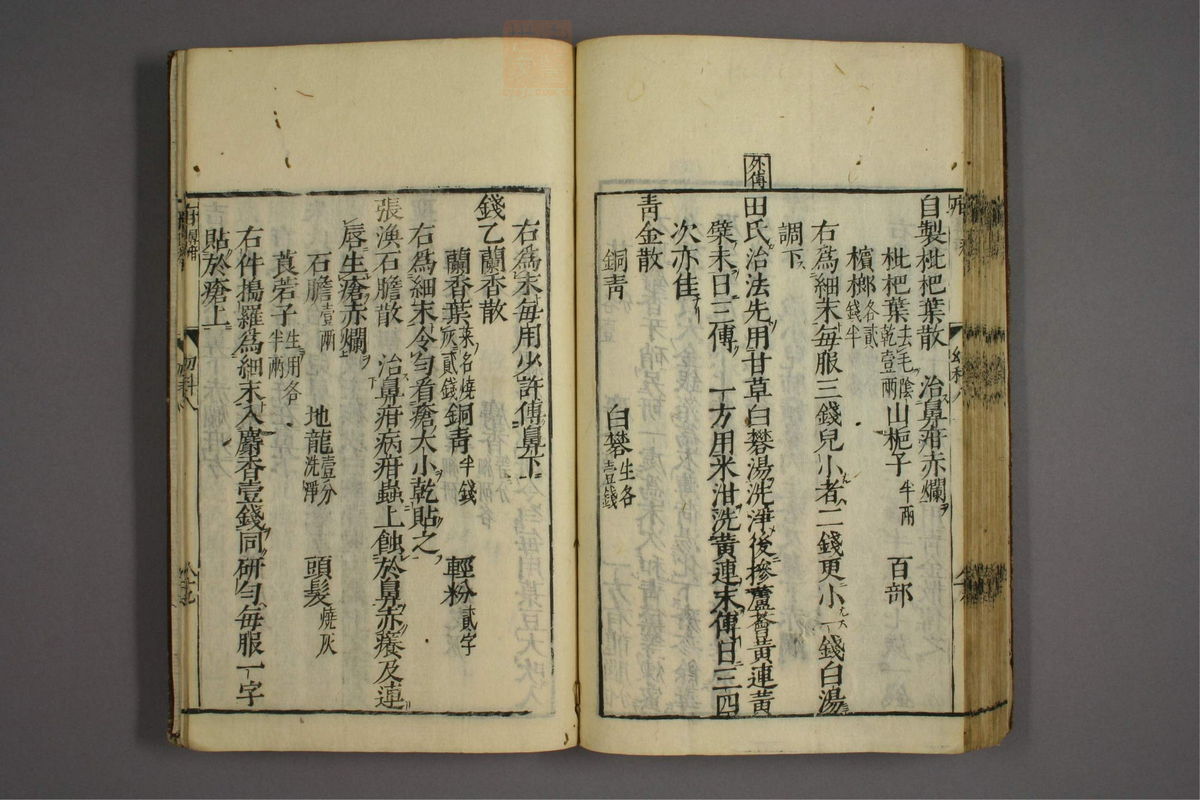 自製枇杷葉散　治鼻疳赤爛
枇杷葉去毛陰乾壹兩　山梔子半兩　百部
檳榔各貳錢半
右為細末毎服三錢兒小者二錢更小一錢白湯
調下
外傅
田氏治法先用甘草白礬湯洗淨後摻蘆薈黃連黃
糵末日三傅　一方用米泔洗黃連末傅日三四
次亦佳
青金散
銅青　白礬生各壹錢
右為末毎用少許傅鼻下
錢乙蘭香散
蘭香葉菜名燒灰貳錢　銅青半錢　輕粉貳字
右為細末令勻看瘡大小乾貼之
張渙石膽散　治鼻疳病疳蟲上蝕於鼻赤癢及連
唇生瘡赤爛
石膽壹兩　地龍壹分洗淨　頭髮燒灰
莨菪子生用各半兩
右件搗羅為細末入麝香壹錢同研勻毎服一字
貼於瘡上
幼科八